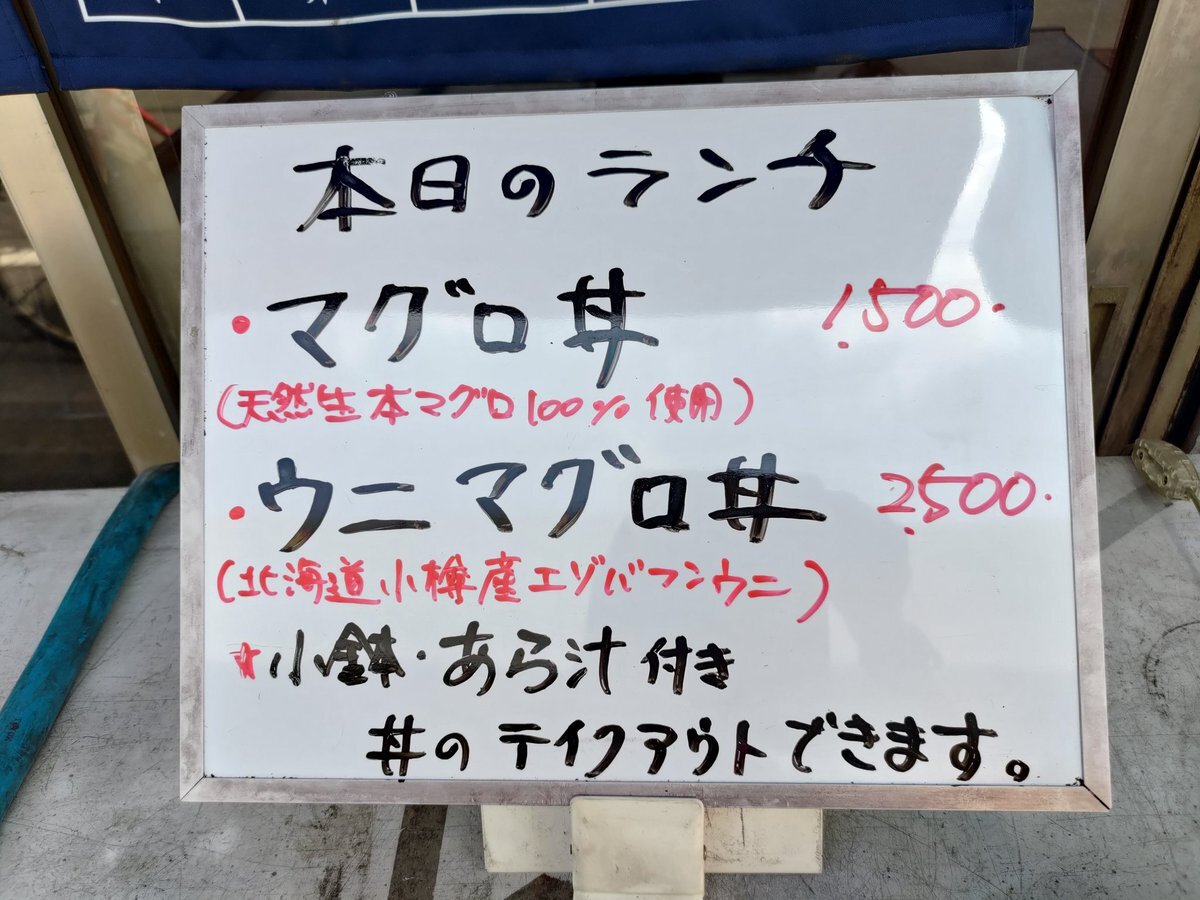 本日のランチ
・マグロ丼 1,500.
(天然生本マグロ100%使用)
・ウニマグロ丼 2,500.
(北海道小樽産エゾバフンウニ)
★小鉢・あら汁付き
丼のテイクアウトできます。